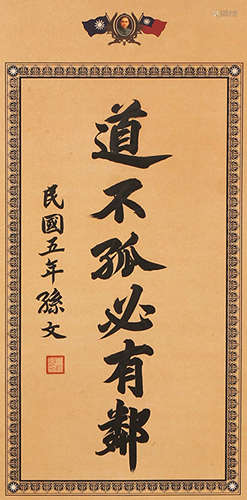 道不孤必有鄰
民國五年孫文